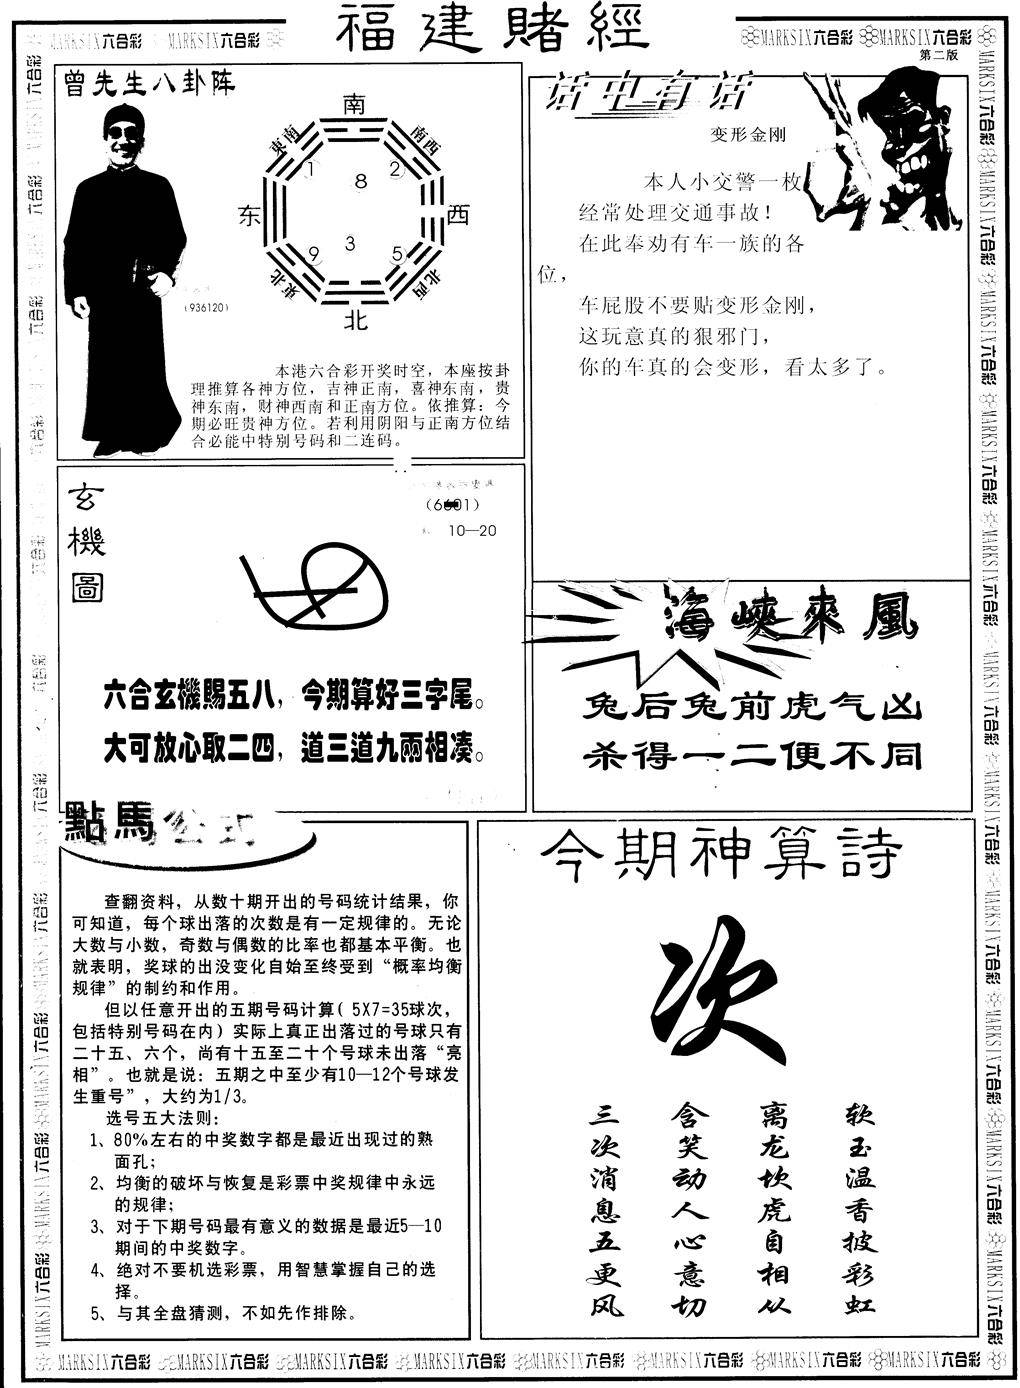 福建賭經
MARKSIX六合彩 MARKSIX六合彩
MARKSIX六合彩 MARKSIX六合彩
第二版
曾先生八卦阵
南
東南
南西
1
2
8
东
西
3
9
5
東北
北西
北
(936120)
本港六合彩开奖时空，本座按卦
理推算各神方位，吉神正南，喜神东南，贵
神东南，财神西南和正南方位。依推算：今
期必旺贵神方位。若利用阴阳与正南方位结
合必能中特别号码和二连码。
话中有话
变形金刚
本人小交警一枚
经常处理交通事故！
在此奉劝有车一族的各
位，
车屁股不要贴变形金刚，
这玩意真的狠邪门，
你的车真的会变形，看太多了。
玄機圖
10—20
六合玄機賜五八，今期算好三字尾。
大可放心取二四，道三道九兩相凑。
海峽來風
兔后兔前虎气凶
杀得一二便不同
點馬公式
查翻资料，从数十期开出的号码统计结果，你
可知道，每个球出落的次数是有一定规律的。无论
大数与小数，奇数与偶数的比率也都基本平衡。也
就表明，奖球的出没变化自始至终受到“概率均衡
规律”的制约和作用。
但以任意开出的五期号码计算( 5X7=35球次，
包括特别号码在内) 实际上真正出落过的号球只有
二十五、六个，尚有十五至二十个号球未出落“亮
相”。也就是说：五期之中至少有10—12个号球发
生重号”，大约为1/3。
选号五大法则：
1、80%左右的中奖数字都是最近出现过的熟
面孔；
2、均衡的破坏与恢复是彩票中奖规律中永远
的规律；
3、对于下期号码最有意义的数据是最近5—10
期间的中奖数字。
4、绝对不要机选彩票，用智慧掌握自己的选
择。
5、与其全盘猜测，不如先作排除。
今期神算詩
次
软玉温香披彩虹
离龙坎虎自相从
含笑动人心意切
三次消息五更风
MARKSIX六合彩 MARKSIX六合彩 MARKSIX六合彩 MARKSIX六合彩 MARKSIX六合彩 MARKSIX六合彩 MARKSIX六合彩 MARKSIX六合彩